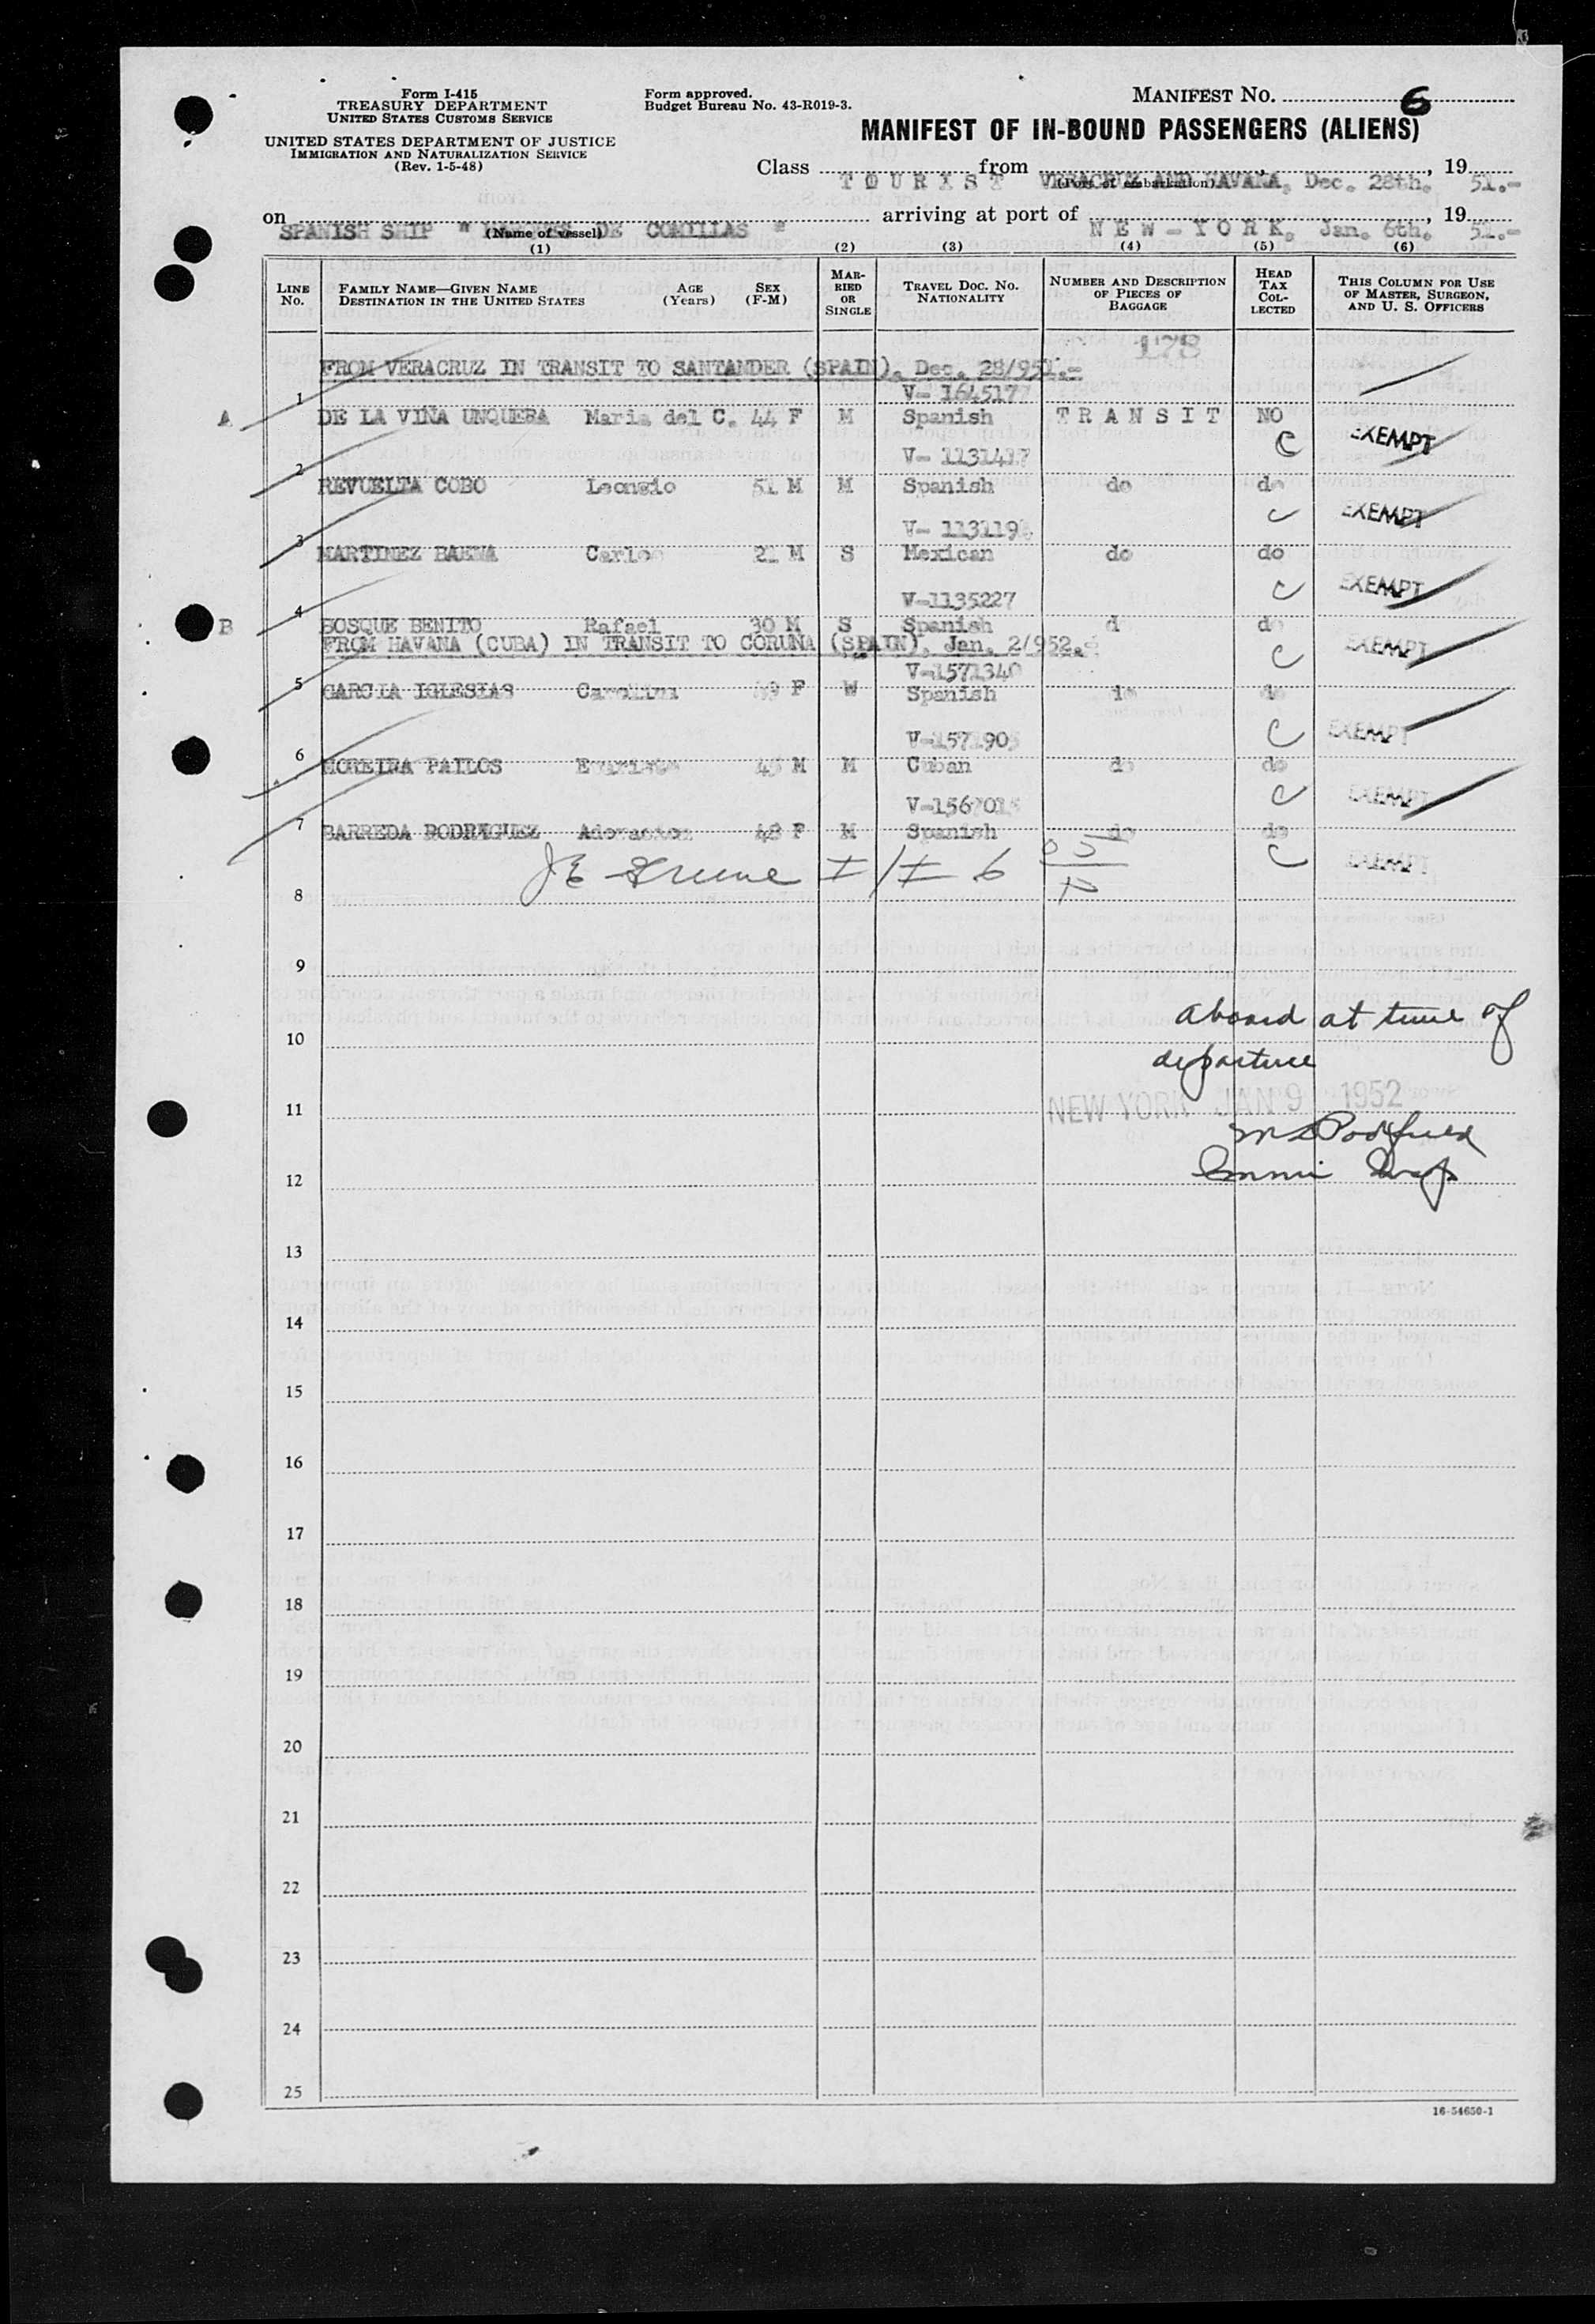 Form I-415
TREASURY DEPARTMENT
UNITED STATES CUSTOMS SERVICE
UNITED STATES DEPARTMENT OF JUSTICE
IMMIGRATION AND NATURALIZATION SERVICE
(Rev. 1-5-48)
Form approved.
Budget Bureau No. 43-R019-3.
MANIFEST No. 6
MANIFEST OF IN-BOUND PASSENGERS (ALIENS)
Class TOURIST from VERACRUZ AND HAVANA, Dec. 28th, 1951.-
(Port of embarkation)
on SPANISH SHIP " DE COMILLAS " arriving at port of NEW-YORK, Jan. 6th, 1951.-
(Name of vessel)
(1) (2) (3) (4) (5) (6)
LINE No. FAMILY NAME—GIVEN NAME DESTINATION IN THE UNITED STATES AGE (Years) SEX (F-M) MARRIED OR SINGLE TRAVEL DOC. NO. NATIONALITY NUMBER AND DESCRIPTION OF PIECES OF BAGGAGE HEAD TAX COLLECTED THIS COLUMN FOR USE OF MASTER, SURGEON, AND U. S. OFFICERS
178
FROM VERACRUZ IN TRANSIT TO SANTANDER (SPAIN), Dec. 28/951.-
V- 1645177
A 1 DE LA VIÑA UNQUERA Maria del C. 44 F M Spanish TRANSIT NO
V- 1131417 C EXEMPT
2 REVUELTA COBO Leoncio 51 M M Spanish do do
V- 113119 C EXEMPT
3 MARTINEZ BAENA Carlo 21 M S Mexican do do
V-1135227 C EXEMPT
B 4 BOSQUE BENITO Rafael 30 M S Spanish d do
FROM HAVANA (CUBA) IN TRANSIT TO CORUÑA (SPAIN), Jan. 2/952.-
V-1571340 C EXEMPT
5 GARCIA IGLESIAS Carolina F W Spanish do do
V-157190 C EXEMPT
6 MOREIRA PAILOS M M Cuban do do
V-156701 C EXEMPT
7 BARREDA RODRIGUEZ Adoracion 48 F M Spanish do do
JE Greene I/I 6 C EXEMPT
8
9
aboard at time of
10
departure
11 NEW YORK JAN 9 1952
12
13
14
15
16
17
18
19
20
21
22
23
24
25
16-54650-1